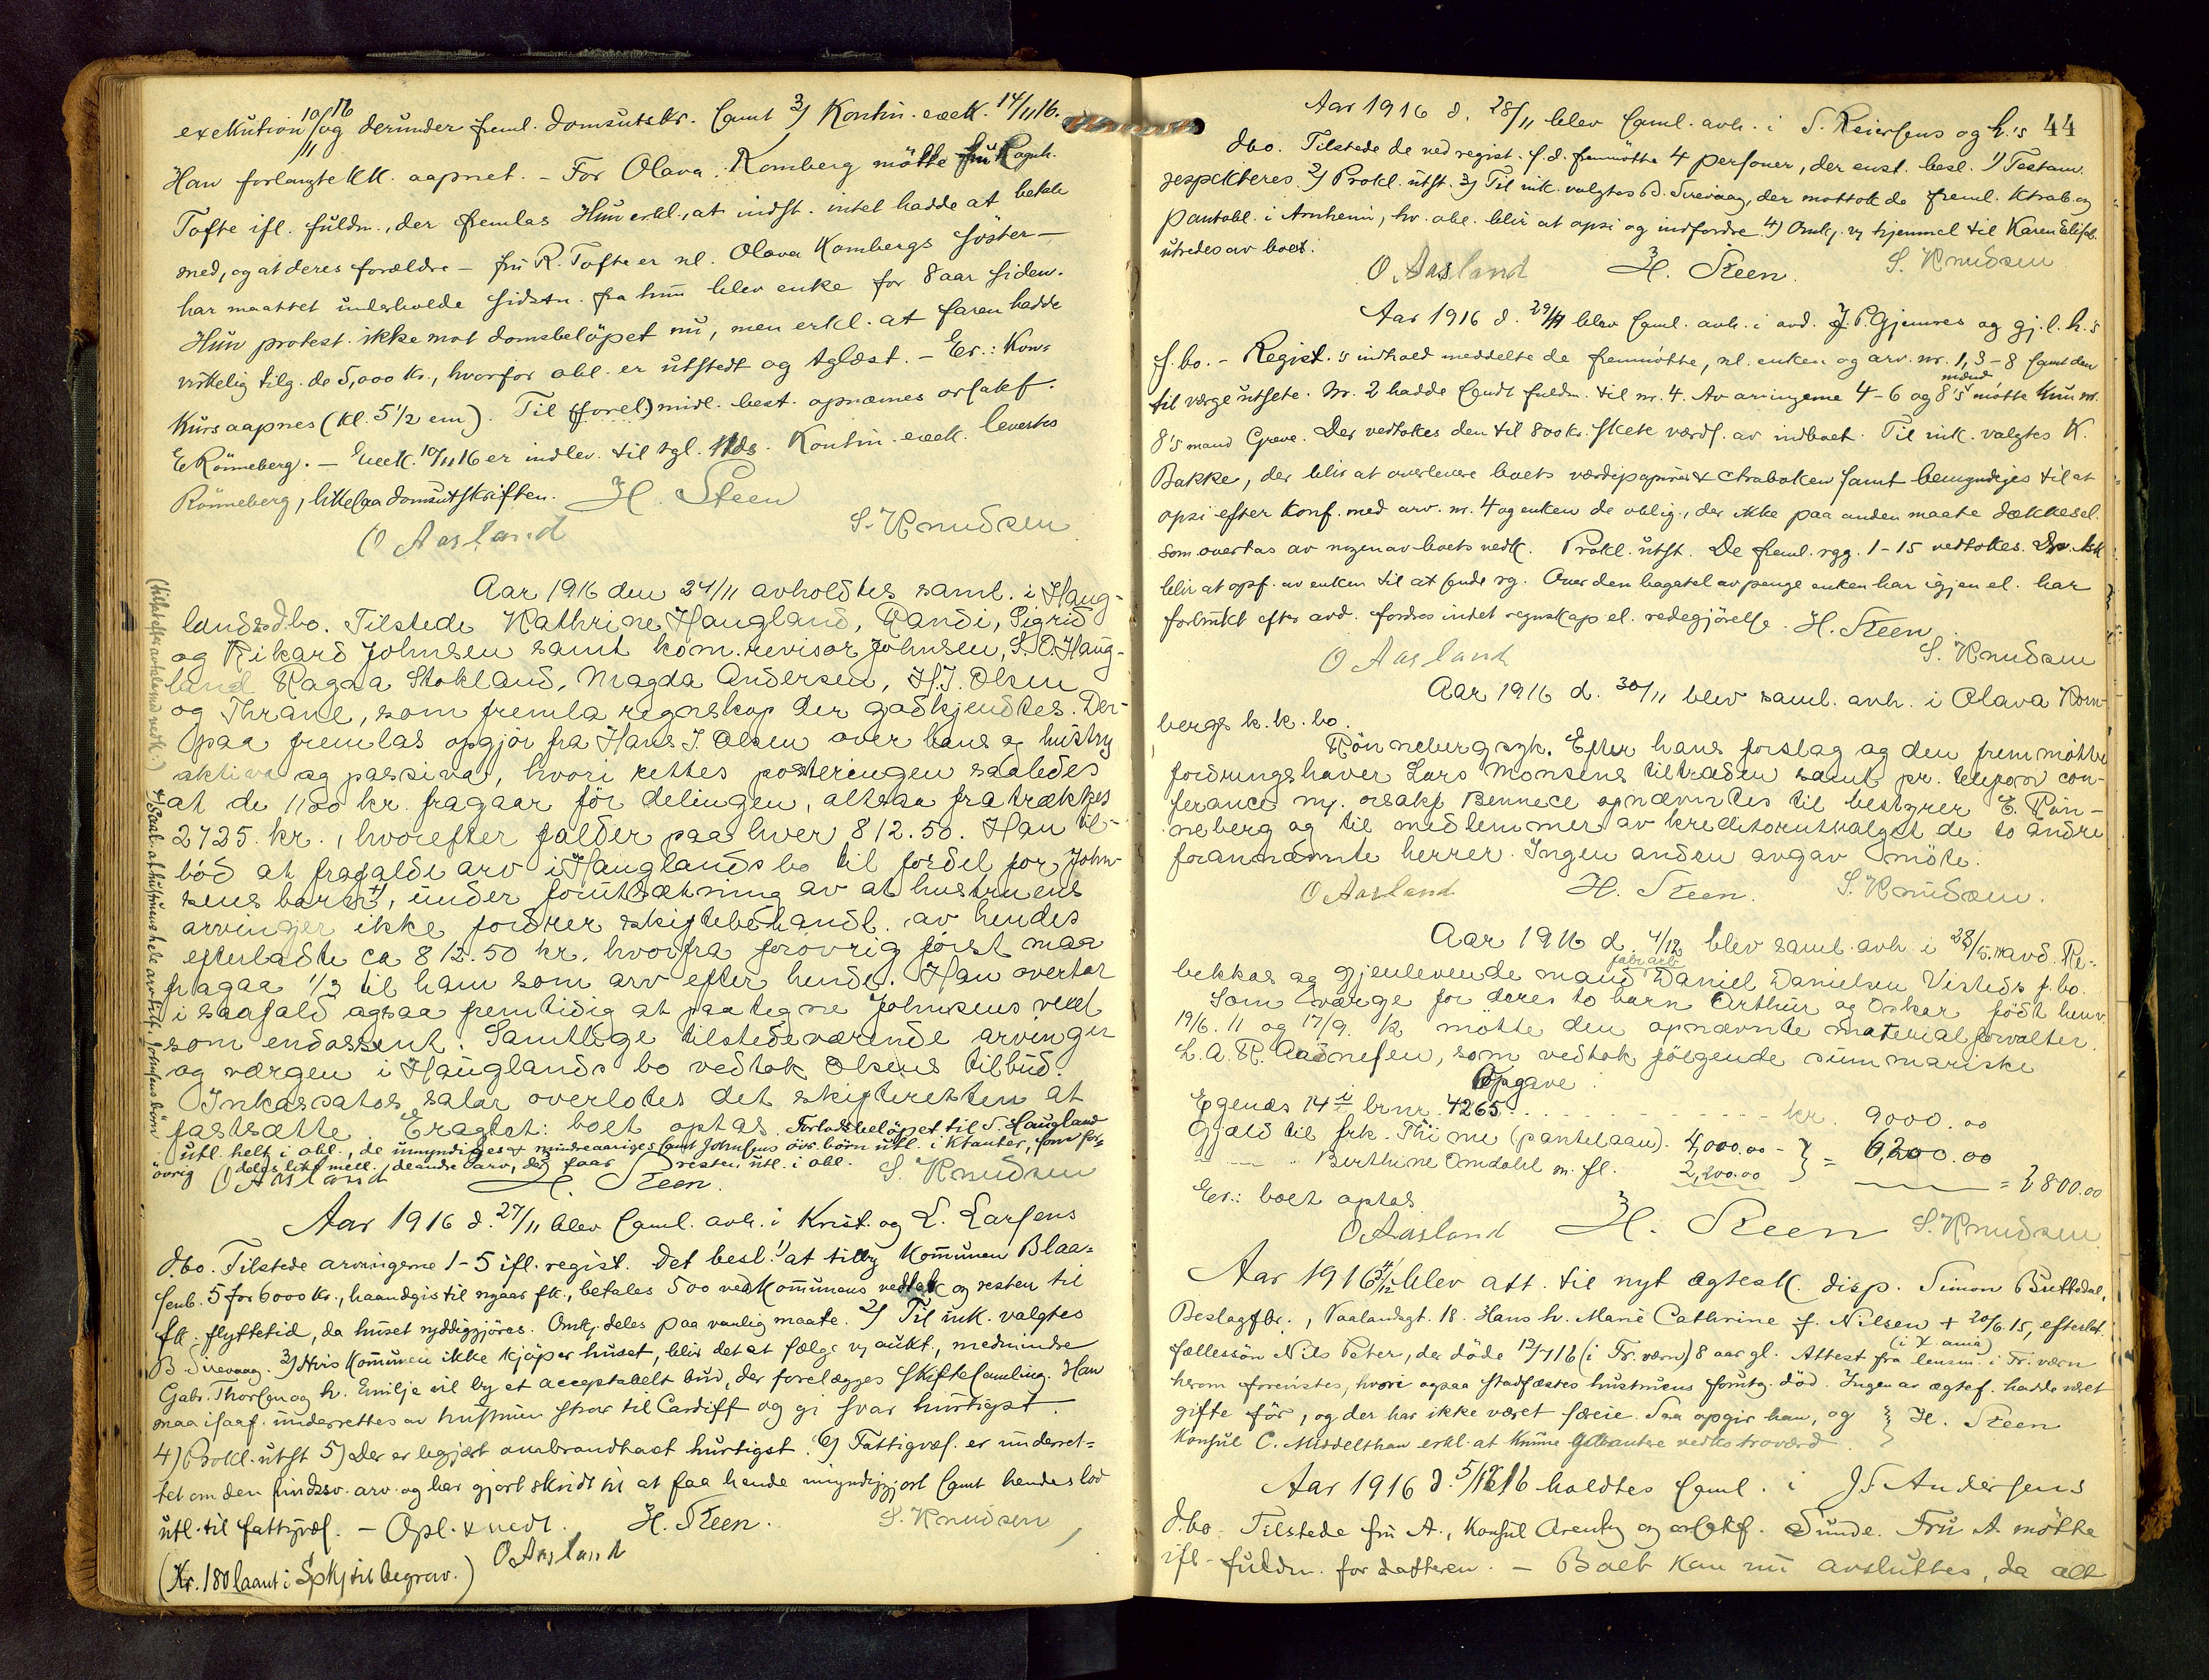 exekution 10/11 16 og derunder freml. domsutskr. samt 3) Kontin. exek. 14/11 16.
Han forlangte KK. aapnet. - For Olava Komberg mötte fru Ragnh.
Tofte ifl. fuldm., der fremlas Hun erkl., at indst. intet hadde at betale
med, og at deres forældre - fru R. Tofte er nl. Olava Kombergs söster -
har maattet underholde sidstn. fra hun blev enke for 8 aar siden.
Hun protest. ikke mot domsbelöpet nu, men erkl. at faren hadde
virkelig tilg. de 5,000 kr., hvorfor obl. er utstedt og tglæst. - Er.: Kon-
kurs aapnes (kl. 5 1/2 em). Til (forel) midl. best. opnævnes orsakf.
E Rönneberg. - Exek. 10/11 16 er indlev. til tgl. Kontin. exek. levertes
Rönneberg, likesaa domsutskriften. H. Steen
O Aasland S. Knudsen
Aar 1916 den 24/11 avholdtes saml. i Haug-
lands dbo. Tilstede Kathrine Haugland, Randi, Sigrid
og Rikard Johnsen samt kom. revisor Johnsen, S. O. Haug-
land Ragna Stokland, Magda Andersen, H. J. Olsen
og Thrane, som fremla regnskap der godkjendtes. Der-
paa fremlas opgjör fra Hans J. Olsen over hans og hustru
aktiva og passiva, hvori rettes posteringen saaledes
at de 1100 kr. fragaar för delingen, altsaa fratrækkes
2725 kr., hvorefter falder paa hver 812.50. Han til-
bød at frafalde arv i Hauglands bo til fordel for John-
sens barn +), under forutsætning av at hustruens
arvinger ikke fordrer skiftebehandl. av hendes
efterladte ca 812.50 kr. hvorfra forøvrig først maa
fragaa 1/3 til ham som arv efter hende. Han overtar
i saafald ogsaa fremtidig at paategne Johnsens vexel
som endossent. Samtlige tilstedeværende arvinger
og værgen i Hauglands bo vedtok Olsens tilbud.
Inkassators salær overlotes det skifteretten at
fastsætte. Eragtet: boet optas. Forlodsbelöpet til S. Haugland
utl. helt i obl., de umyndiges & mindreaariges samt Johnsens övr. börn utl. i kontanter, som for-
övrig deles likt mell. de andre arv., der faar resten utl. i obl.
O Aasland H. Steen. S. Knudsen
(tilföiet efter avtale med vedk.) +) Saal. at hustruens hele arv tilf. Johnsens börn
Aar 1916 d. 27/11 blev saml. avh. i Krist. og L. Larsens
dbo. Tilstede arvingerne 1-5 ifl. regist. Det besl. 1) at tilby Kommunen Blaa-
senb. 5 for 6000 kr., haandgis til nyaar fk., betales 500 ved Kommunens vedtak og resten til
fk. flyttetid, da huset ryddiggjöres. Omk. deles paa vanlig maate. 2) Til ink. valgtes
B Sirevaag. 3) Hvis Kommunen ikke kjöper huset, blir det at sælge v. aukt., medmindre
Gabr. Thorsen og h. Emilje vil by et acceptabelt bud, der forelægges skiftesamling. Han
maa isaaf. underrettes av hustruen strax til Cardiff og gi svar hurtigst.
4) Prokl. utst 5) Der er begjært ombrandtaxt hurtigst. 6) Fattigvæs. er underret-
tet om den sindssv. arv. og har gjort skridt til at faa hende umyndiggjort samt hendes lod
utl. til fattigvæs. - Opl. & vedt. H. Steen. S. Knudsen
(Kr. 180 laant i Spkj til begrav.) O Aasland
44
Aar 1916 d. 28/11 blev saml. avh. i S. Reiersens og h.'s
dbo. Tilstede de ved regist. s. d. fremmötte 4 personer, der enst. besl. 1) Testam.
respekteres. 2) Prokl. utst. 3) Til ink. valgtes B. Sirevaag, der mottok de freml. ktrab. og
pantobl. i Arnheim, hv. obl. blir at opsi og indfordre. 4) Omk. v. hjemmel til Karen Elisab.
utredes av boet.
O. Aasland H. Steen. S. Knudsen
Aar 1916 d. 29/11 blev saml. avh. i avd. J. P. Gjemres og gj. l. h.'s
f. bo. - Regist.'s indhold meddelte de fremmötte, nl. enken og arv. nr. 1, 3-8 samt den
til værge utsete. Nr. 2 hadde sendt fuldm. til nr. 4. Av arvingerne 4-6 og 8's mænd mötte kun nr.
8's mand Greve. Der vedtokes den til 800 kr. skete værds. av indboet. Til ink. valgtes K.
Bakke, der blir at overlevere boets værdipapirer & ctraboken samt bemyndiges til at
opsi efter konf. med arv. nr. 4 og enken de oblig., der ikke paa anden maate dækkes el.
som overtas av nogen av boets vedk. Prokl. utst. De freml. rgg. 1-15 vedtokes.
blir at opf. av enken til at sende rg. Over den bagatel av penge enken har igjen el. har
forbrukt efter avd. fordres intet regnskap el. redegjörelse. H. Steen
O Aasland S. Knudsen
Aar 1916 d. 30/11 blev saml. avh. i Olava Kom-
bergs k. k. bo.
Rönneberg syk. Efter hans forslag og den fremmötte
fordringshaver Lars Monsens tiltræden samt pr. telefon con-
ferance m. orsakf Bennece opnævntes til bestyrer E. Rön-
neberg og til medlemmer av kreditorutvalget de to andre
forannævnte herrer. Ingen anden avgav möte.
O Aasland H. Steen. S. Knudsen.
Aar 1916 d. 4/12 blev saml. avh. i 28/5. avd. Re-
bekkas og gjenlevende mand fabr arb Daniel Danielsen Visteds f. bo.
Som værge for deres to barn Arthur og Oskar født henv.
19/6. 11 og 17/9. 12 mötte den opnævnte materialforvalter
L. A. R. Aadnesen, som vedtok følgende summariske
Opgave:
Egenæs 14 i brnr. 4265 . . . kr. 9000.00
Gjæld til frk. Thime (pantelaan). 4,000.00 - } = 6,200.00
— „ Berthine Omdahl m. fl. 2,200.00 = 2800.00
Er.: boet optas
O Aasland H. Steen S. Knudsen
Aar 1916 4/12 blev att. til nyt ægtesk. disp. Simon Buttedal,
Beslagfbr., Vaalandsgt. 18. Hans h. Marie Cathrine f. Nilsen + 20/6. 15, efterlot
fællessön Nils Peter, der döde 12/7 16 (i Fr. værn) 8 aar gl. Attest fra lensm. i Fr. værn
herom forevistes, hvori ogsaa stadfæstes hustruens forutg. död. Ingen av ægtef. hadde været
gifte för, og der har ikke været særeie. Saa opgir han, og } H. Steen
Konsul C. Middelthon erkl. at kunne garantere vedks troværd.
Aar 1916 d. 5/12 16 holdtes saml. i J S Andersens
dbo. Tilstede fru A., Konsul Arentz og orsakf. Sunde. Fru A. mötte
ifl. fuldm. for datteren. - Boet kan nu avsluttes, da alt